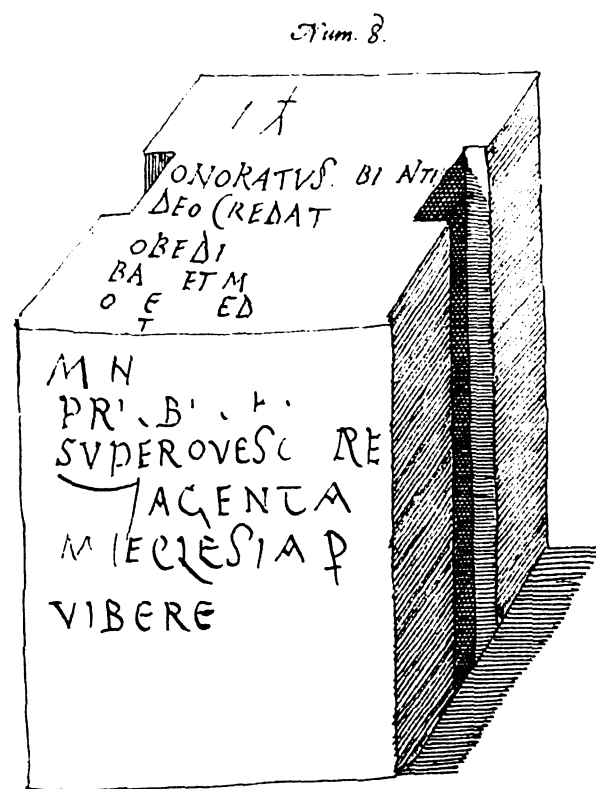 Num. 8.
ONORATVS. BI ANTI
DEO CREDAT
OBEDI
BA ET M
O E ED
T
M N
PR B
SVPEROVESC RE
AGENTA
M IECLESIA P
VIBERE